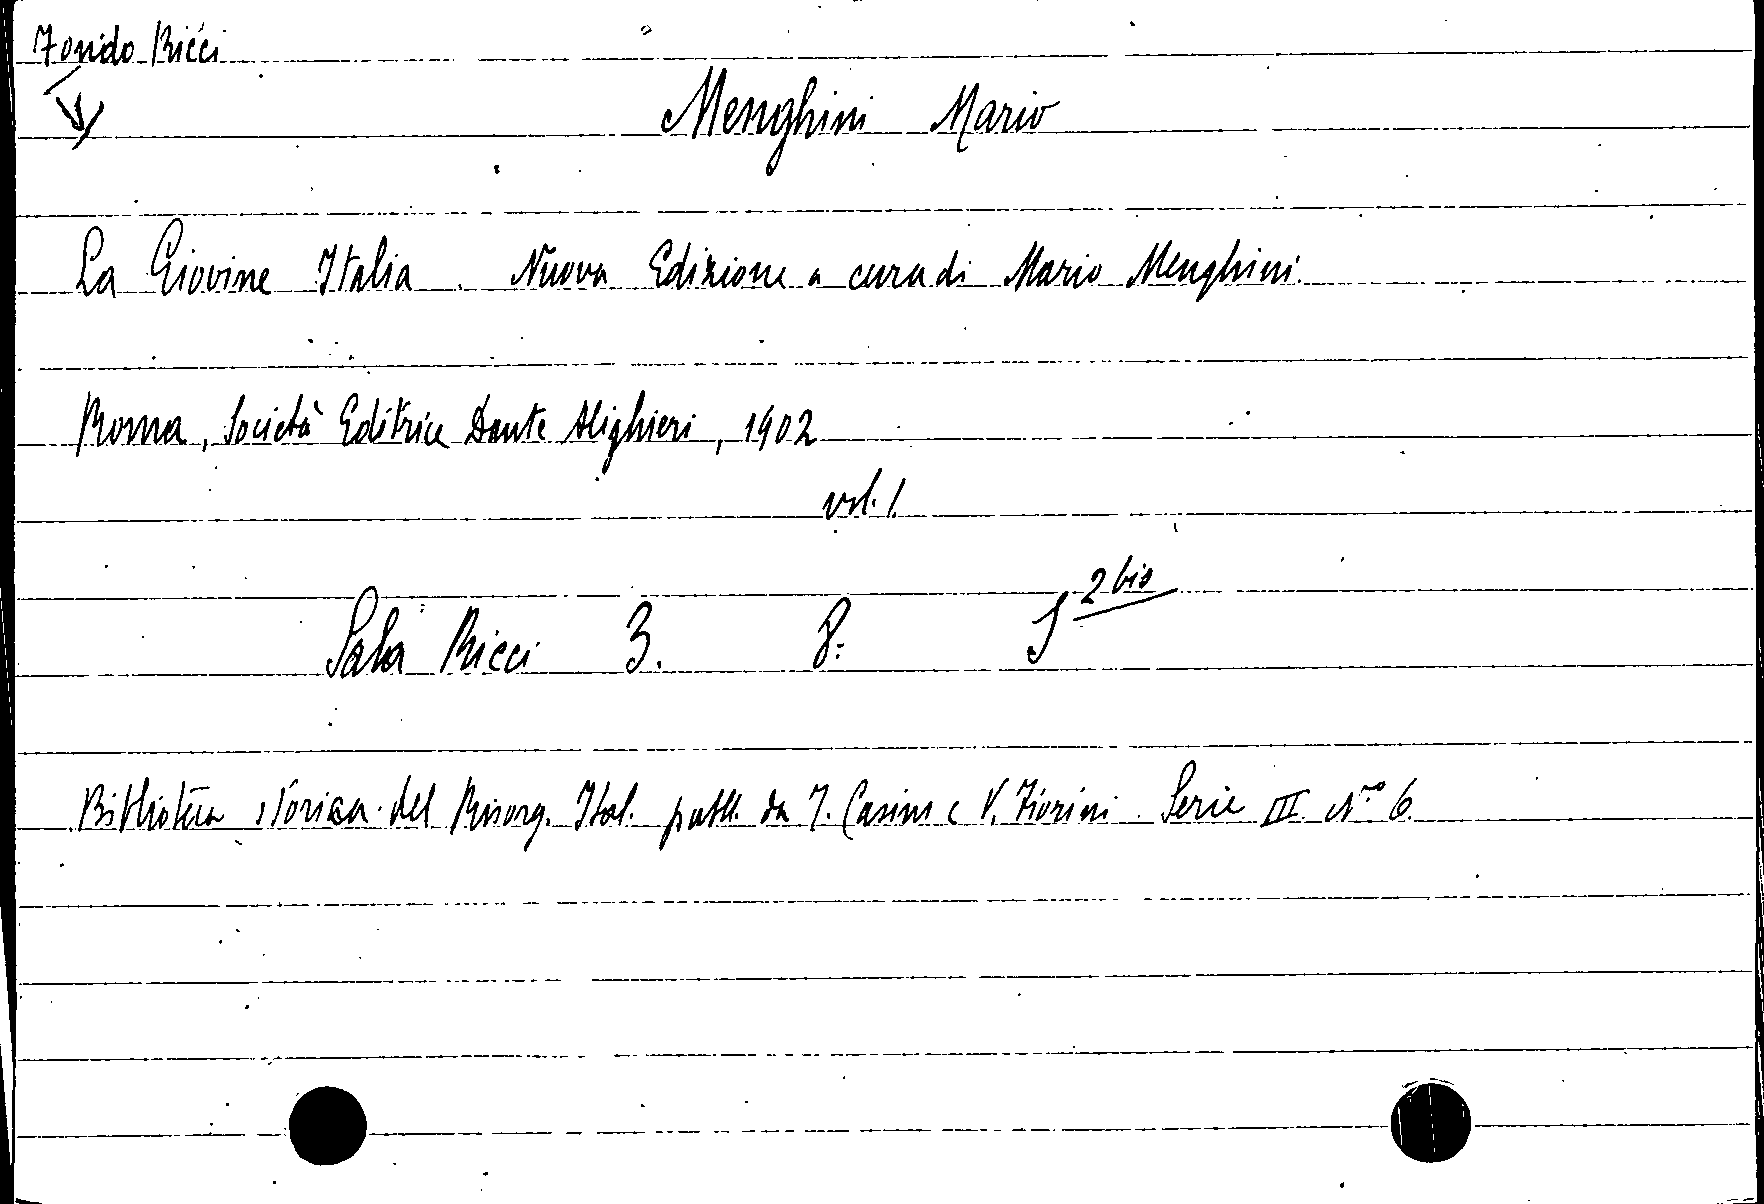 Fondo Ricci
Menghini Mario
La Giovine Italia. Nuova Edizione a cura di Mario Menghini.
Roma, Società Editrice Dante Alighieri, 1902
vol. 1.
Sala Ricci 3. 8. 2 bis
Biblioteca storica del Risorg. Ital. pubbl. da T. Casini e V. Fiorini. Serie III Nro 6.